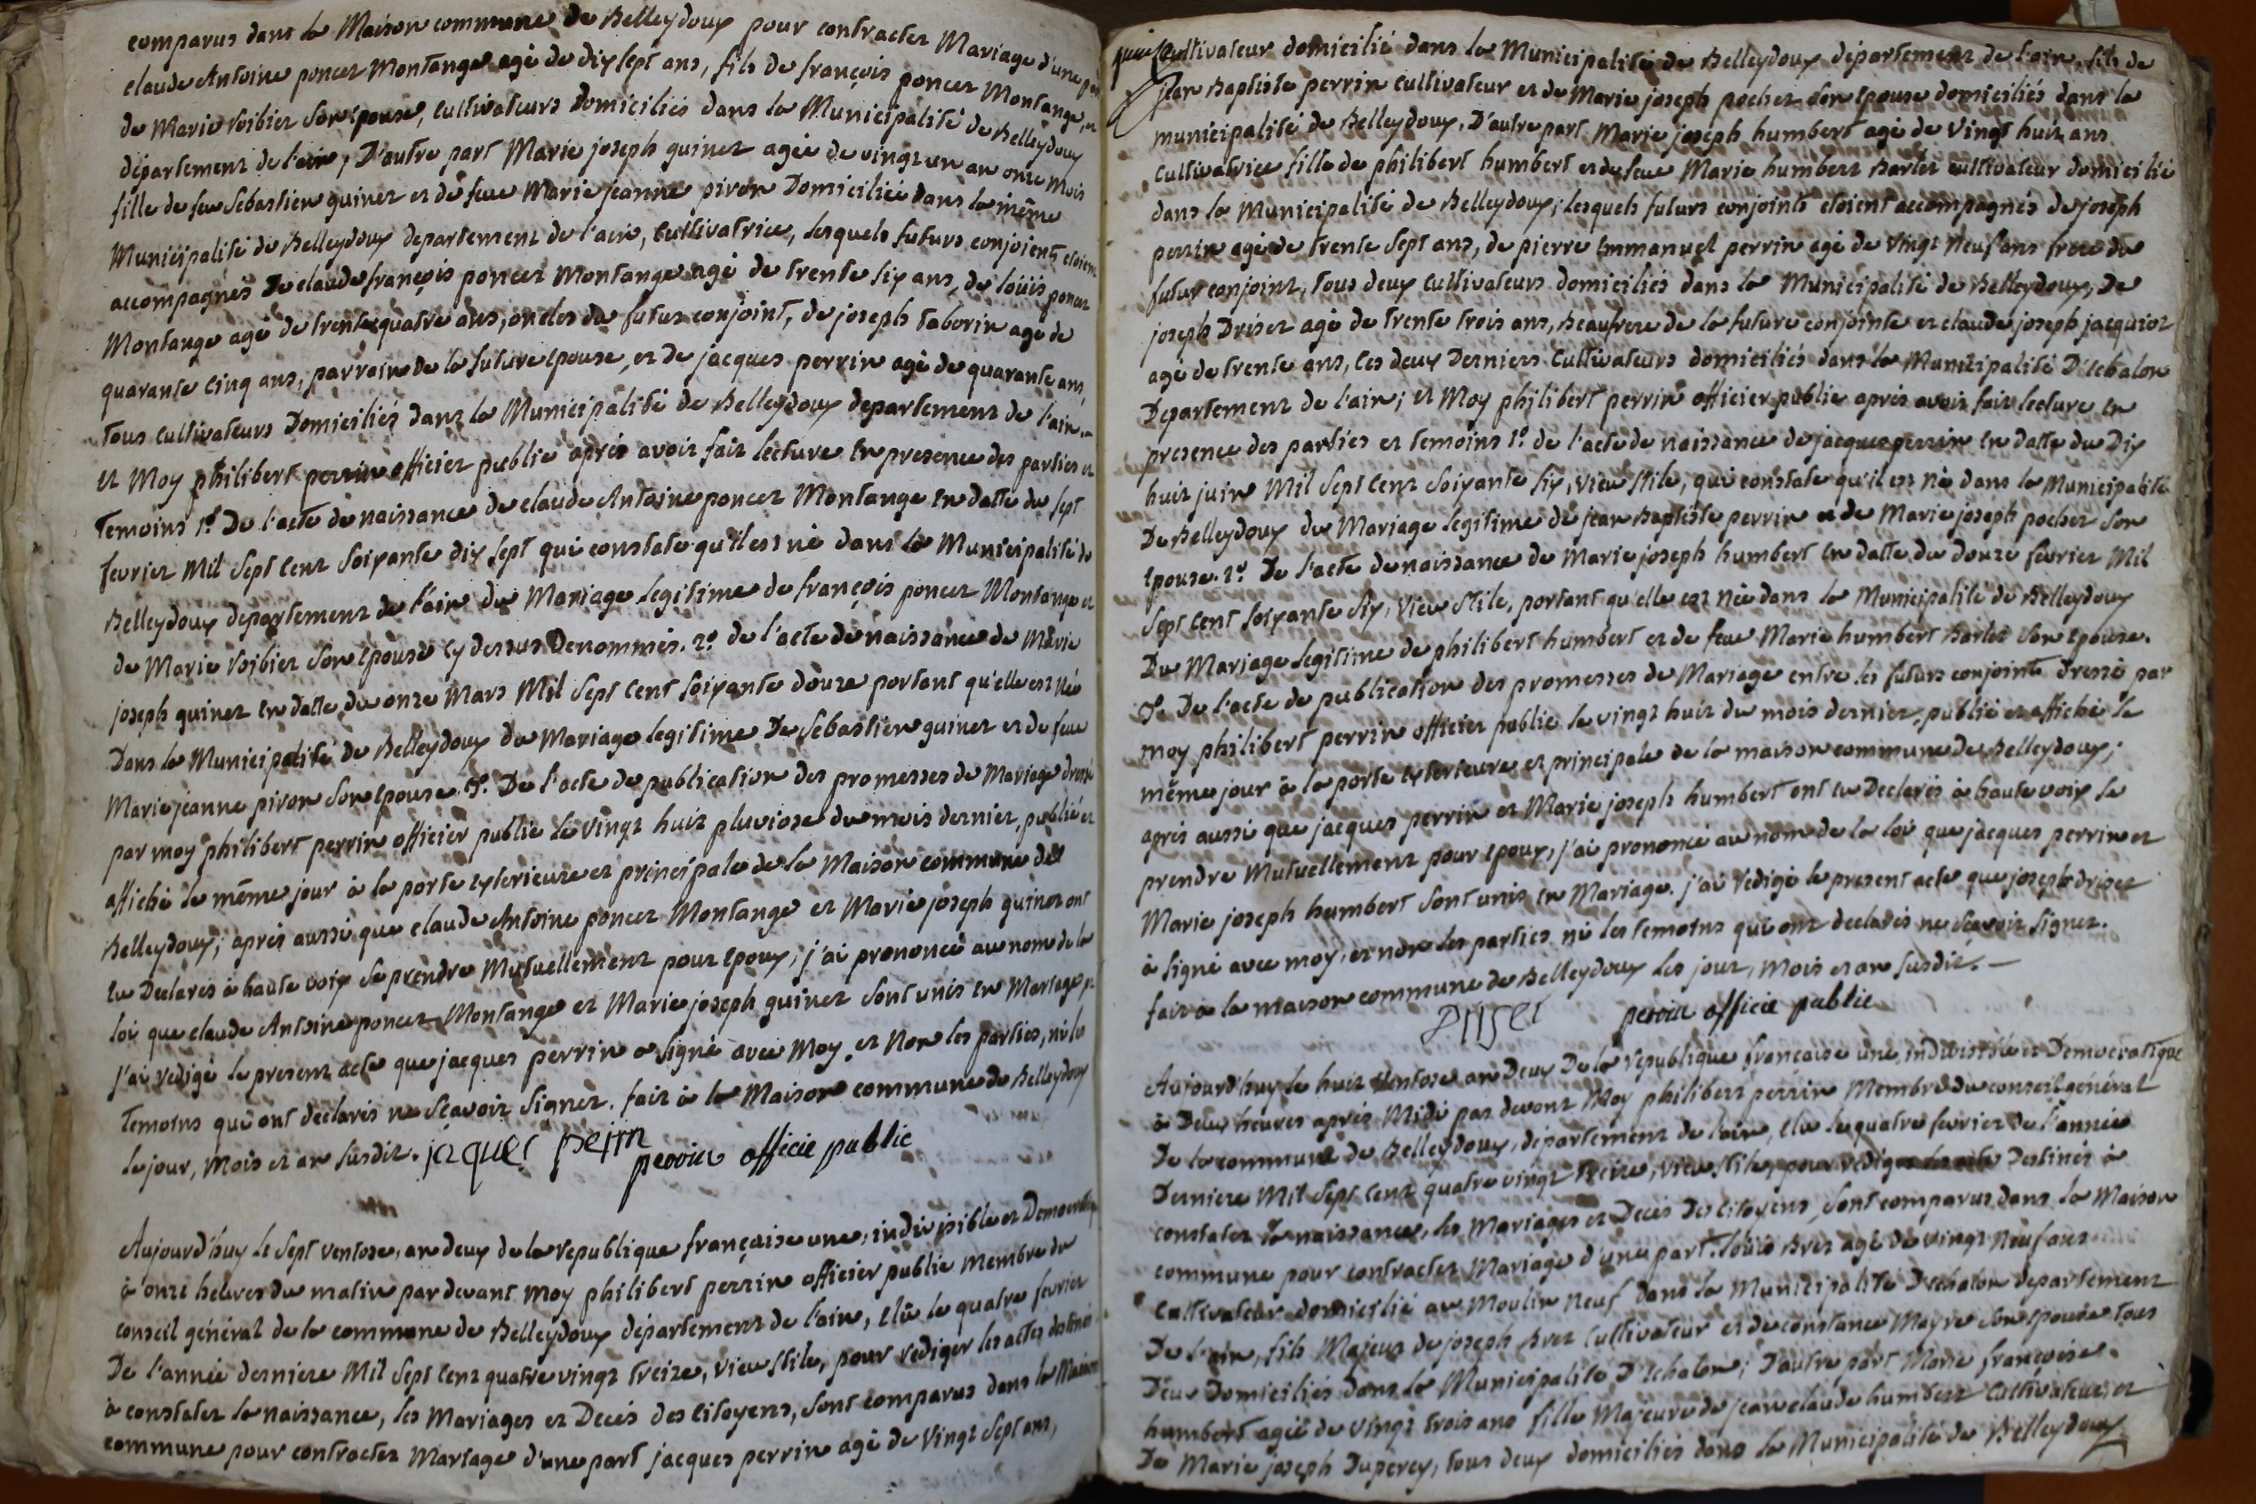 comparus dans la Maison commune de Belleydoux pour contracter Mariage d'une part
claude Antoine poncer Montange agé de dix sept ans, fils de françois poncer Montange, et
de Marie Roibier son epouse, cultivateurs domiciliés dans la Municipalité de Belleydoux
departement de l'ain, D'autre part Marie joseph guiner agée de vingt un an onze mois
fille de feu Sebastien guiner et de feue Marie jeanne piron Domiciliée dans la même
Municipalité de Belleydoux departement de l'ain, Cultivatrice, lesquels futurs conjoients etoient
accompagnés De claude françois poncer Montange agé de trente six ans, de loüis poncer
Montange agé de trente quatre ans, oncles du futur conjoint, de joseph taborin agé de
quarante cinq ans, parrain De la future epouse, et de jacques perrin agé de quarante ans,
tous cultivateurs Domiciliés dans la Municipalité de Belleydoux departement de l'ain,
et Moy philibert perrin officier public aprés avoir fait lecture en presence des parties et
Temoins 1º De l'acte de naissance de claude Antoine poncer Montange en datte du sept
fevrier Mil Sept Cent Soixante dix sept qui constate qu'il est né dans la Municipalité de
Belleydoux departement de l'ain du Mariage legitime de françois poncer Montange et
de Marie Roibier son epouse cy dessus Denommés. 2º de l'acte de naissance de Marie
joseph guiner en datte du onze Mars Mil Sept Cent Soixante douze portant qu'elle est Née
Dans la Municipalité de Belleydoux du Mariage legitime De Sebastien guiner et de feue
Marie jeanne piron Son epouse. 3º. De l'acte de publication des promesses de Mariage dressé
par moy philibert perrin officier public le vingt huit pluviose du mois dernier, publié et
affiché le même jour à la porte exterieure et principale de la Maison commune de
Belleydoux; aprés aussi que claude Antoine poncer Montange et Marie joseph guiner ont
eu Declarés à haute voix se prendre Mutuellement pour epoux, j'ai prononcé au nom de la
loi que claude Antoine poncer Montange et Marie joseph guiner sont unis en Mariage
j'ai redigé le present acte que jacques perrin a signé avec Moy, et Non les parties, ni les
Temoins qui ont declarés ne Scavoir signer. fait à la Maison commune de Belleydoux
le jour, Mois et an susdit. jaques perrin
perrin officie public
Aujourd'huy le Sept ventose, an deux de la republique française une, indivisible et Democratique
à onze heures du matin par devant moy philibert perrin officier public Membre du
conseil général de la commune de Belleydoux département de l'ain, elû le quatre fevrier
De l'année derniere Mil Sept Cent quatre vingt treize, vieu stile, pour rediger les actes destinés
à constater la naissance, les Mariages et Décés des Citoyens, sont comparus dans la Maison
commune pour contracter Mariage d'une part jacques perrin agé de vingt sept ans,
cultivateur domicilié dans la Municipalité de Belleydoux département de l'ain, fils de
jean Baptiste perrin cultivateur et de Marie joseph pocher son epouse domiciliés dans la
municipalité de Belleydoux, D'autre part Marie joseph humbert agé de vingt huit ans
cultivatrice fille de philibert humbert et de feue Marie humbert Barlet cultivateur domicilié
dans la Municipalité de Belleydoux; lesquels futurs conjoints etoient accompagnés de joseph
perrin agé de trente sept ans, de pierre Emmanuel perrin agé de vingt neuf ans frere du
futur conjoint, tous deux cultivateurs domiciliés dans la Municipalité de Belleydoux, De
joseph Driser agé de trente trois ans, Beaufrere de la future conjointe et claude joseph jacquiot
agé de trente ans, ces deux Derniers cultivateurs domiciliés dans la Municipalité D'Echalon
Departement de l'ain; et Moy philibert perrin officier public aprés avoir fait lecture en
presence des parties et temoins 1º. de l'acte de naissance de jacques perrin en datte du Dix
huit juin Mil Sept Cent Soixante Six, vieu stile, qui constate qu'il est né dans la Municipalité
De Belleydoux du Mariage legitime de jean Baptiste perrin et de Marie joseph pocher son
epouse. 2º. De l'acte de naissance de Marie joseph humbert en datte du douze fevrier Mil
Sept Cent Soixante Six, vieu stile, portant qu'elle est née dans la Municipalité de Belleydoux
Du Mariage legitime de philibert humbert et de feue Marie humbert Barlet son epouse.
3º. De l'acte de publication des promesses de Mariage entre les futurs conjoints Dressé par
moy philibert perrin officier public le vingt huit du mois dernier, publié et affiché le
même jour à la porte exterieure et principale de la maison commune de Belleydoux;
aprés aussi que jacques perrin et Marie joseph humbert ont eu Declarés à haute voix se
prendre Mutuellement pour epoux, j'ai prononcé au nom de la loi que jacques perrin et
Marie joseph humbert sont unis en Mariage. j'ai redigé le present acte que joseph driser
à signé avec moy, et non les parties ni les temoins qui ont declarés ne Scavoir signer.
fait à la maison commune de Belleydoux les jour, Mois et an susdit.
Driser perrin officie public
Aujourd'huy le huit Ventose an Deux De la republique française une, indivisible et Democratique
à Deux heures aprés Midi par devant Moy philibert perrin Membre du conseil général
De la commune de Belleydoux, département de l'ain, elu le quatre fevrier de l'année
Derniere Mil Sept Cent quatre vingt treize, vieu stile, pour rediger les actes Destinés à
constater la naissance, les Mariages et Décés Des Citoyens, sont comparus dans la Maison
commune pour contracter Mariage d'une part. loüis Bret agé de vingt Neuf ans
Cultivateur domicilié au Moulin Neuf Dans la Municipalité D'Echalon departement
De l'ain, fils Majeur de joseph Bret Cultivateur et de constance Mayre son epouse tous
Deux Domiciliés Dans la Municipalité D'Echalon; D'autre part Marie françoise
humbert agée de vingt trois ans fille Majeure de jean claude humbert Cultivateur et
De Marie joseph Duperey, tous deux domiciliés dans la Municipalité de Belleydoux